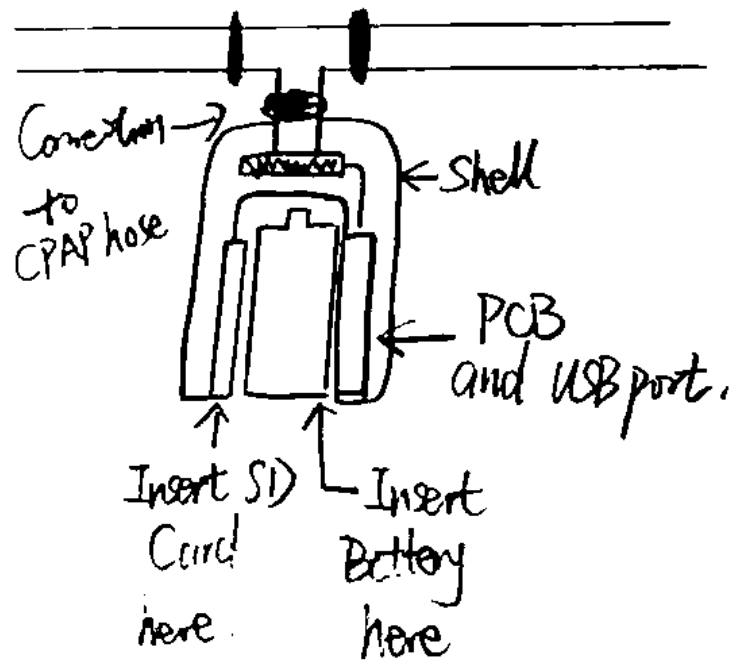 Connection
to
CPAP hose
Shell
PCB
and USB port.
Insert SD
Card
here
Insert
Battery
here